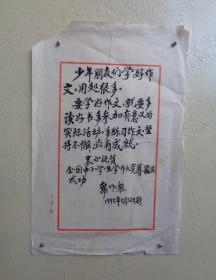 少年朋友们学好作
文，用处很多。
要学好作文，就要多
读好书，多参加有意义的
实际活动，多练习作文，坚
持不懈，必有成就。
衷心祝贺
全国中小学生学作文竞赛圆满
成功
韩作黎